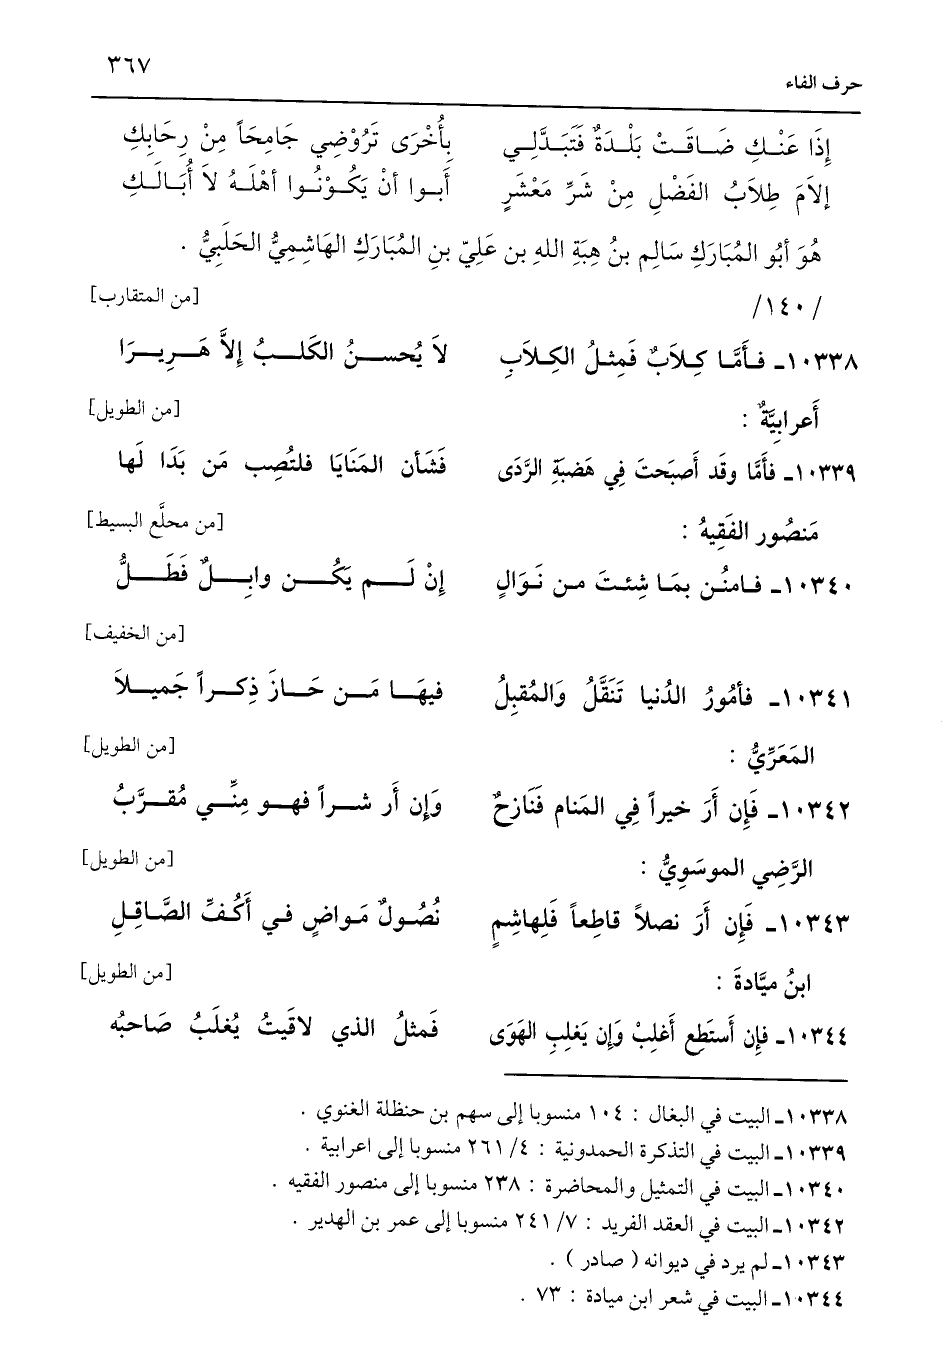 ٣٦٧
حرف الفاء
إذَا عَنْكِ ضَاقَتْ بَلْدَةٌ فَتَبَدَّلِي بِأُخْرَى تَرُوْضِي جَامِحَاً مِنْ رِحَابِكِ
إلاَمَ طِلاَبُ الفَضْلِ مِنْ شَرِّ مَعْشَرٍ أَبوا أنْ يَكُوْنُوا أهْلَهُ لاَ أُبَالَكِ
هُوَ أبُو المُبَارَكِ سَالِم بنُ هِبَةِ اللهِ بن عَلِيّ بنِ المُبَارَكِ الهَاشِمِيُّ الحَلَبِيُّ .
/١٤٠/ [من المتقارب]
١٠٣٣٨ـ فأَمَّا كِلاَبٌ فَمِثلُ الكِلاَبِ لاَ يُحسنُ الكَلبُ إلاَّ هَرِيرَا
أَعرابِيَّةٌ : [من الطويل]
١٠٣٣٩ـ فأَمَّا وقَد أَصبَحتَ فِي هَضبَةِ الرَّدَى فَشَأن المَنَايَا فلتُصِب مَن بَدَا لَها
مَنصُور الفَقِيهُ : [من مخلَّع البسيط]
١٠٣٤٠ـ فامنُن بمَا شِئتَ من نَوَالٍ إنْ لَم يَكُن وابِلٌ فَطَلُّ
[من الخفيف]
١٠٣٤١ـ فأمُورُ الدُنيا تَنَقَّلُ وَالمُقبِلُ فيهَا مَن حَازَ ذِكراً جَميلاَ
المَعَرِّيُّ : [من الطويل]
١٠٣٤٢ـ فَإِن أَرَ خيراً فِي المَنام فَنَازحٌ وَإن أَر شراً فهو مِنِّي مُقرَّبُ
الرَّضِي الموسَوِيُّ : [من الطويل]
١٠٣٤٣ـ فَإِن أَرَ نصلاً قاطِعاً فَلِهاشِمٍ نُصُولٌ مَواضٍ في أَكُفِّ الصَّاقِلِ
ابنُ ميَّادةَ : [من الطويل]
١٠٣٤٤ـ فإِن أَستَطِع أَغلِبْ وَإِن يَغلِبِ الهَوَى فَمثلُ الذي لاقَيتُ يُغلَبُ صَاحبُه
١٠٣٣٨ـ البيت في البغال : ١٠٤ منسوبا إلى سهم بن حنظلة الغنوي .
١٠٣٣٩ـ البيت في التذكرة الحمدونية : ٤/ ٢٦١ منسوبا إلى اعرابية .
١٠٣٤٠ـ البيت في التمثيل والمحاضرة : ٢٣٨ منسوبا إلى منصور الفقيه .
١٠٣٤٢ـ البيت في العقد الفريد : ٧/ ٢٤١ منسوبا إلى عمر بن الهدير .
١٠٣٤٣ـ لم يرد في ديوانه ( صادر ) .
١٠٣٤٤ـ البيت في شعر ابن ميادة : ٧٣ .